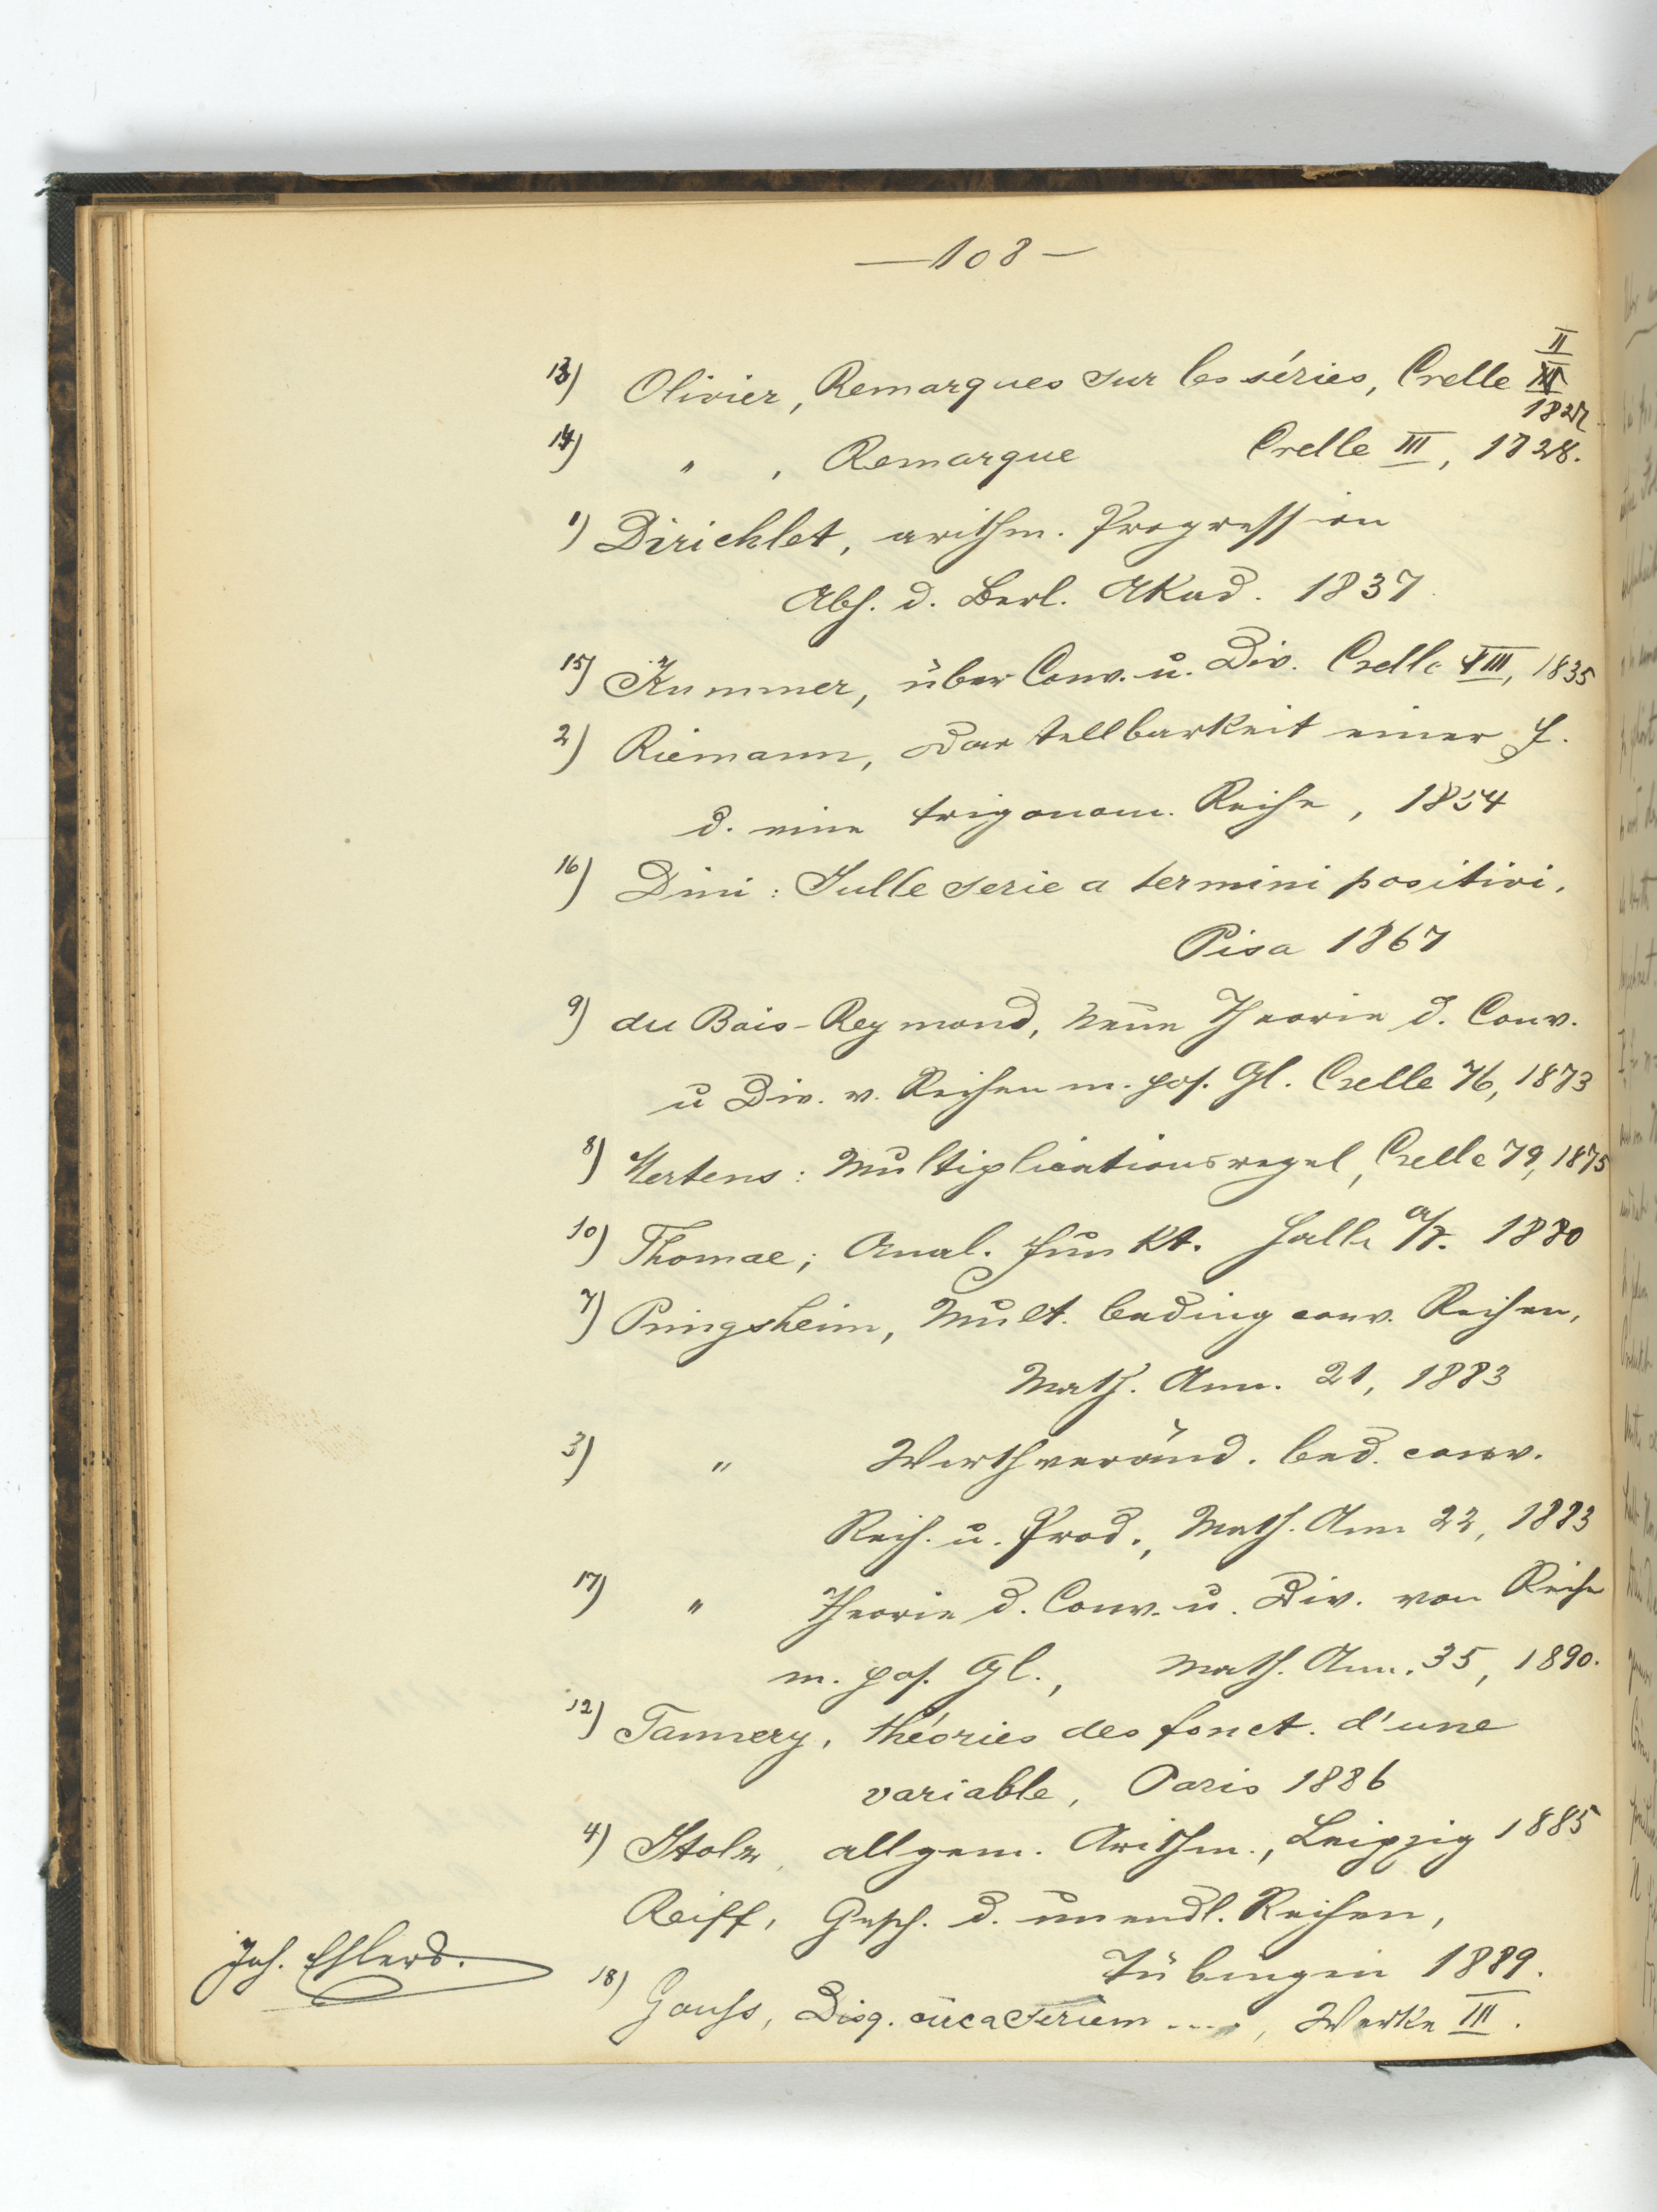 — 108 —
13) Olivier, Remarques sur les séries, Crelle II
1827.
14) " , Remarque Crelle III, 1828.
1) Dirichlet, arithm. Progression
Abh. d. Berl. Akad. 1837.
15) Kummer, über Conv. u. Div. Crelle XIII, 1835
2) Riemann, Darstellbarkeit einer f.
d. eine trigonom. Reihe, 1854
16) Dini: Sulle serie a termini positivi.
Pisa 1867
9) du Bois-Reymond, neue Theorie d. Conv.
u Div. v. Reihen m. pos. Gl. Crelle 76, 1873
8) Mertens: Multiplicationsregel, Crelle 79, 1875
10) Thomae; Anal. Funkt. Halle a/S. 1880
7) Pringsheim, Mult. beding conv. Reihen,
Math. Ann. 21, 1883
3) " Werthveränd. bed. conv.
Reih. u. Prod., Math. Ann 22, 1883
17) " Theorie d. Conv. u. Div. von Reihe
m. pos. Gl., Math. Ann. 35, 1890.
12) Tannery, théories des fonct. d'une
variable, Paris 1886
4) Stolz, allgem. Arithm., Leipzig 1885
Reiff, Gesch. d. unendl. Reihen,
Tübingen 1889.
Joh. Ehlers.
18) Gauss, Disq. circa seriem ...., Werke III.